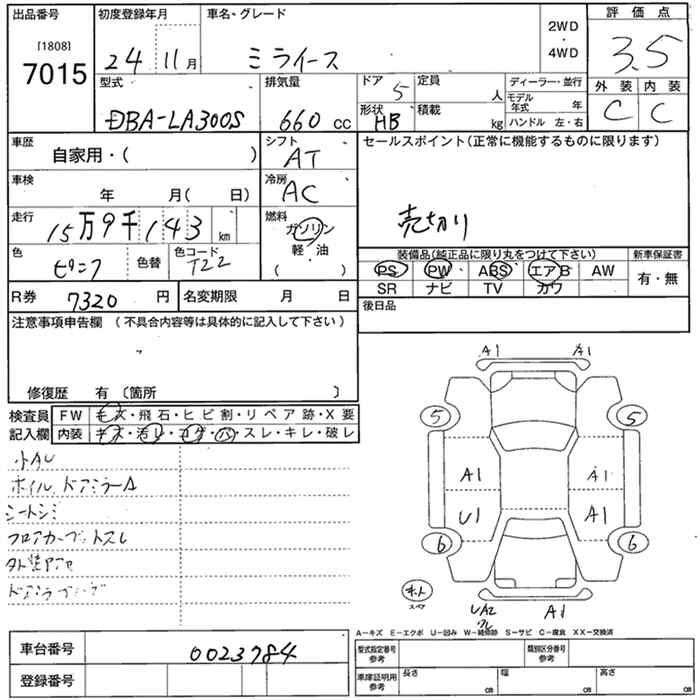 出品番号 初度登録年月 車名・グレード 2WD ・ 4WD 評価点
[1808]
7015 24年 11月 ミライース 3.5
型式 排気量 ドア 5 定員 人 ディーラー・並行 外装 内装
DBA-LA300S 660cc 形状 HB 積載 kg モデル年式 年 ハンドル 左・右 C C
車歴 自家用・( ) シフト AT セールスポイント(正常に機能するものに限ります)
車検 年 月( 日) 冷房 AC
売切り
走行 15万9千143km 燃料 ガソリン 軽・油 ( )
色 ピンク 色替 色コード T22
装備品(純正品に限り丸をつけて下さい) 新車保証書
PS PW ABS エアB AW 有・無
SR ナビ TV カワ
R券 7320円 名変期限 月 日 後日品
注意事項申告欄 (不具合内容等は具体的に記入して下さい)
修復歴 有〔箇所 〕
検査員 FW キズ・飛石・ヒビ割・リペア跡・X要
記入欄 内装 キズ・汚レ・コゲ・ハ・スレ・キレ・破レ
小AU
ホイル、ドアミラーA
シートシミ
フロアカーペットスレ
A1 A1
5 5
A1 A1
U1 A1
6 6
UA2 A1
A-キズ E-エクボ U-凹み W-補修跡 S-サビ C-腐食 XX-交換済
車台番号 0023784
型式指定番号 参考 類別区分番号 参考
登録番号
車庫証明用 参考 長さ cm 幅 cm 高さ cm